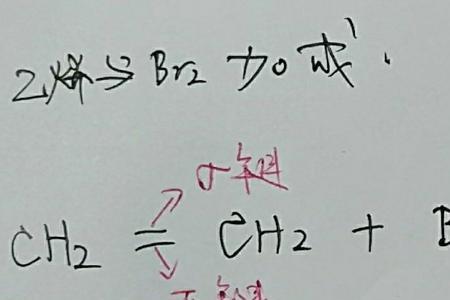 乙烯与Br2加成.
σ键
CH2=CH2+B
π键